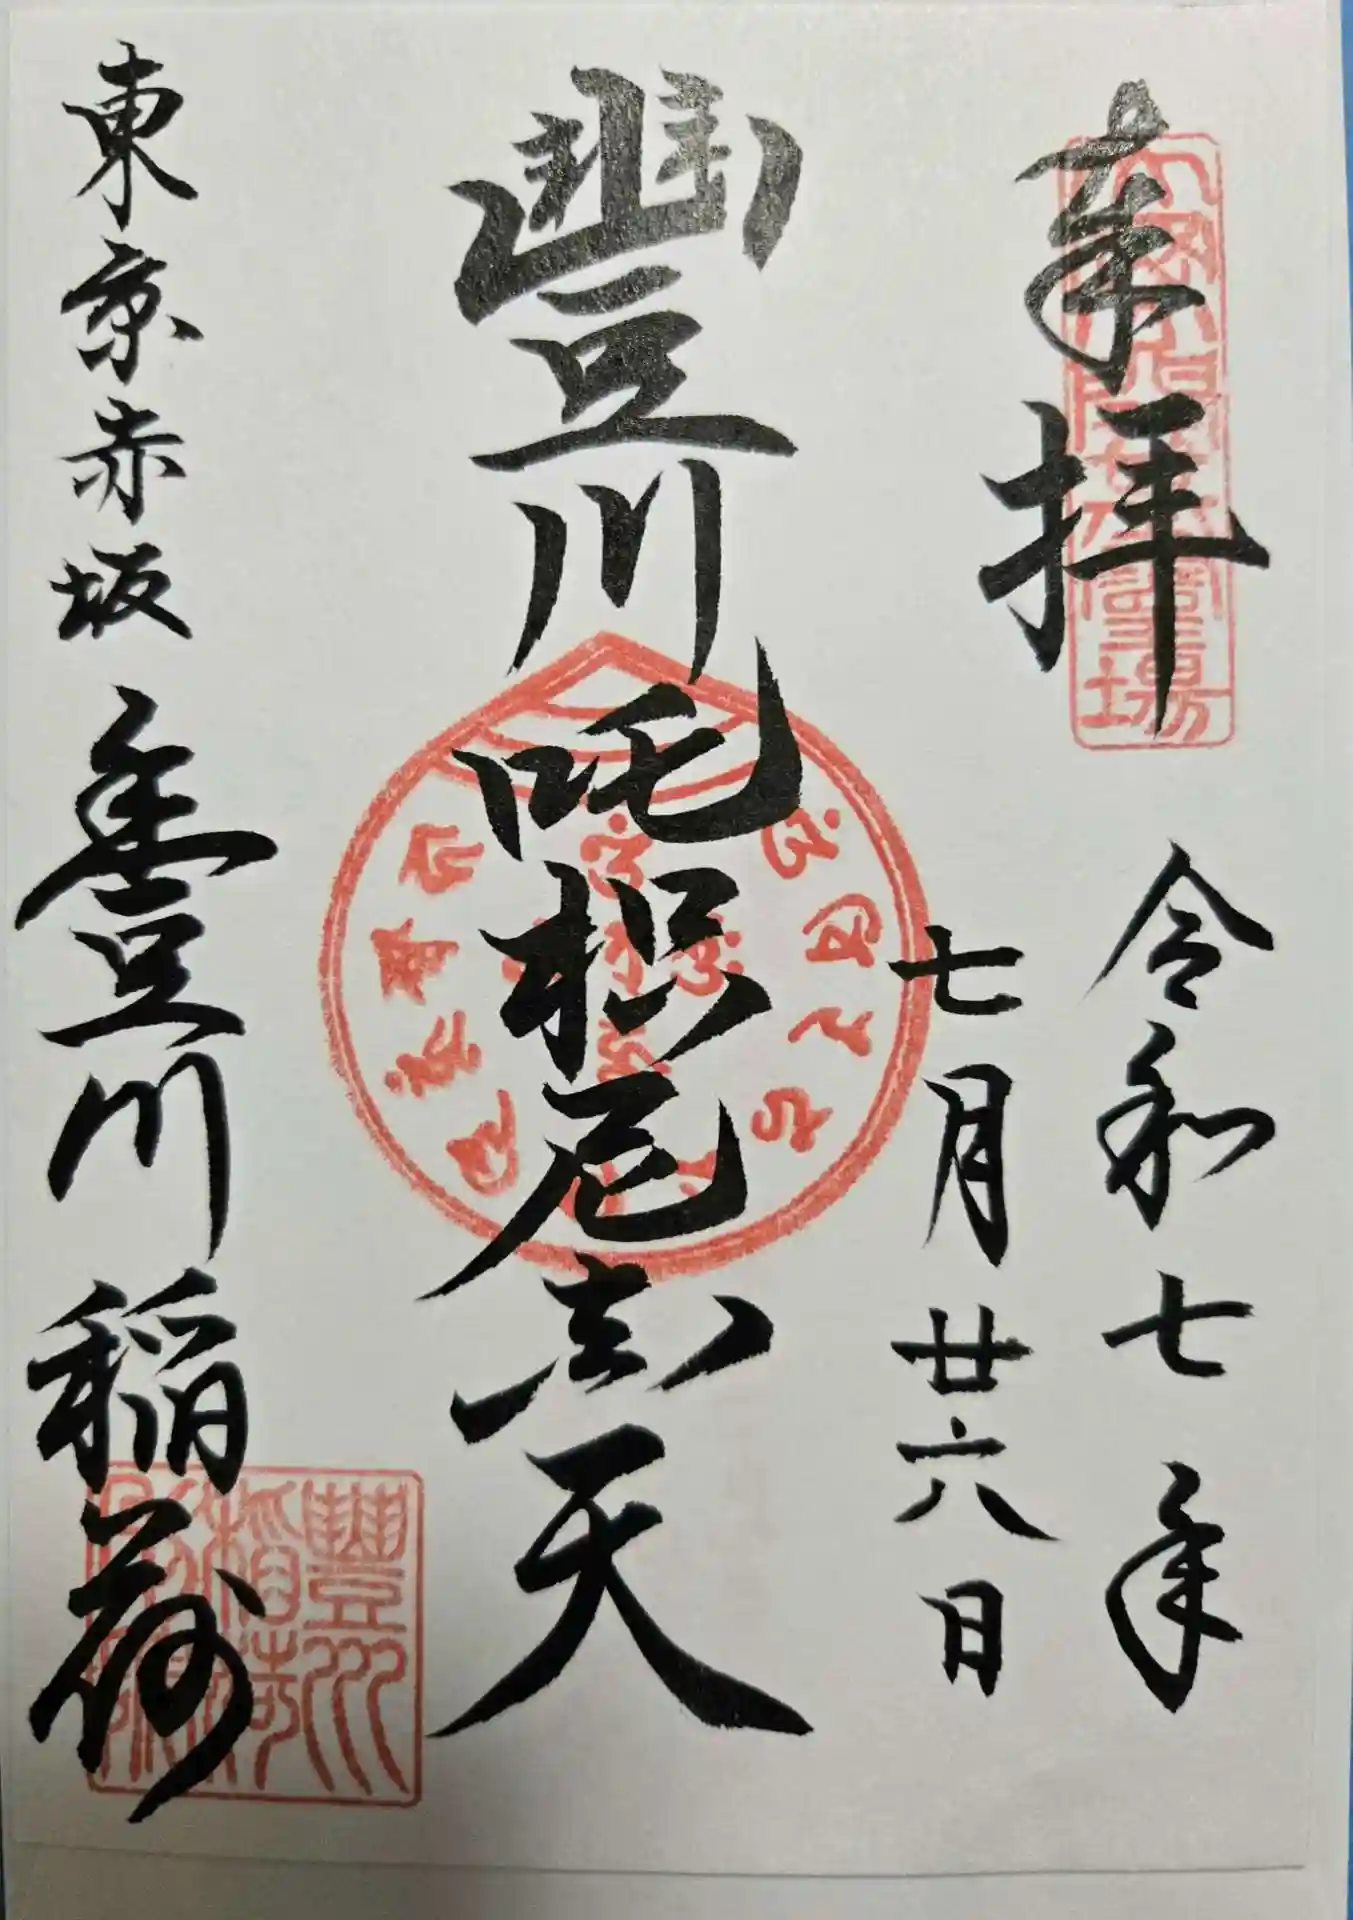 奉拝
令和七年
七月廿六日
豐川吒枳尼真天
東京赤坂
豊川稲荷
豐川稲荷